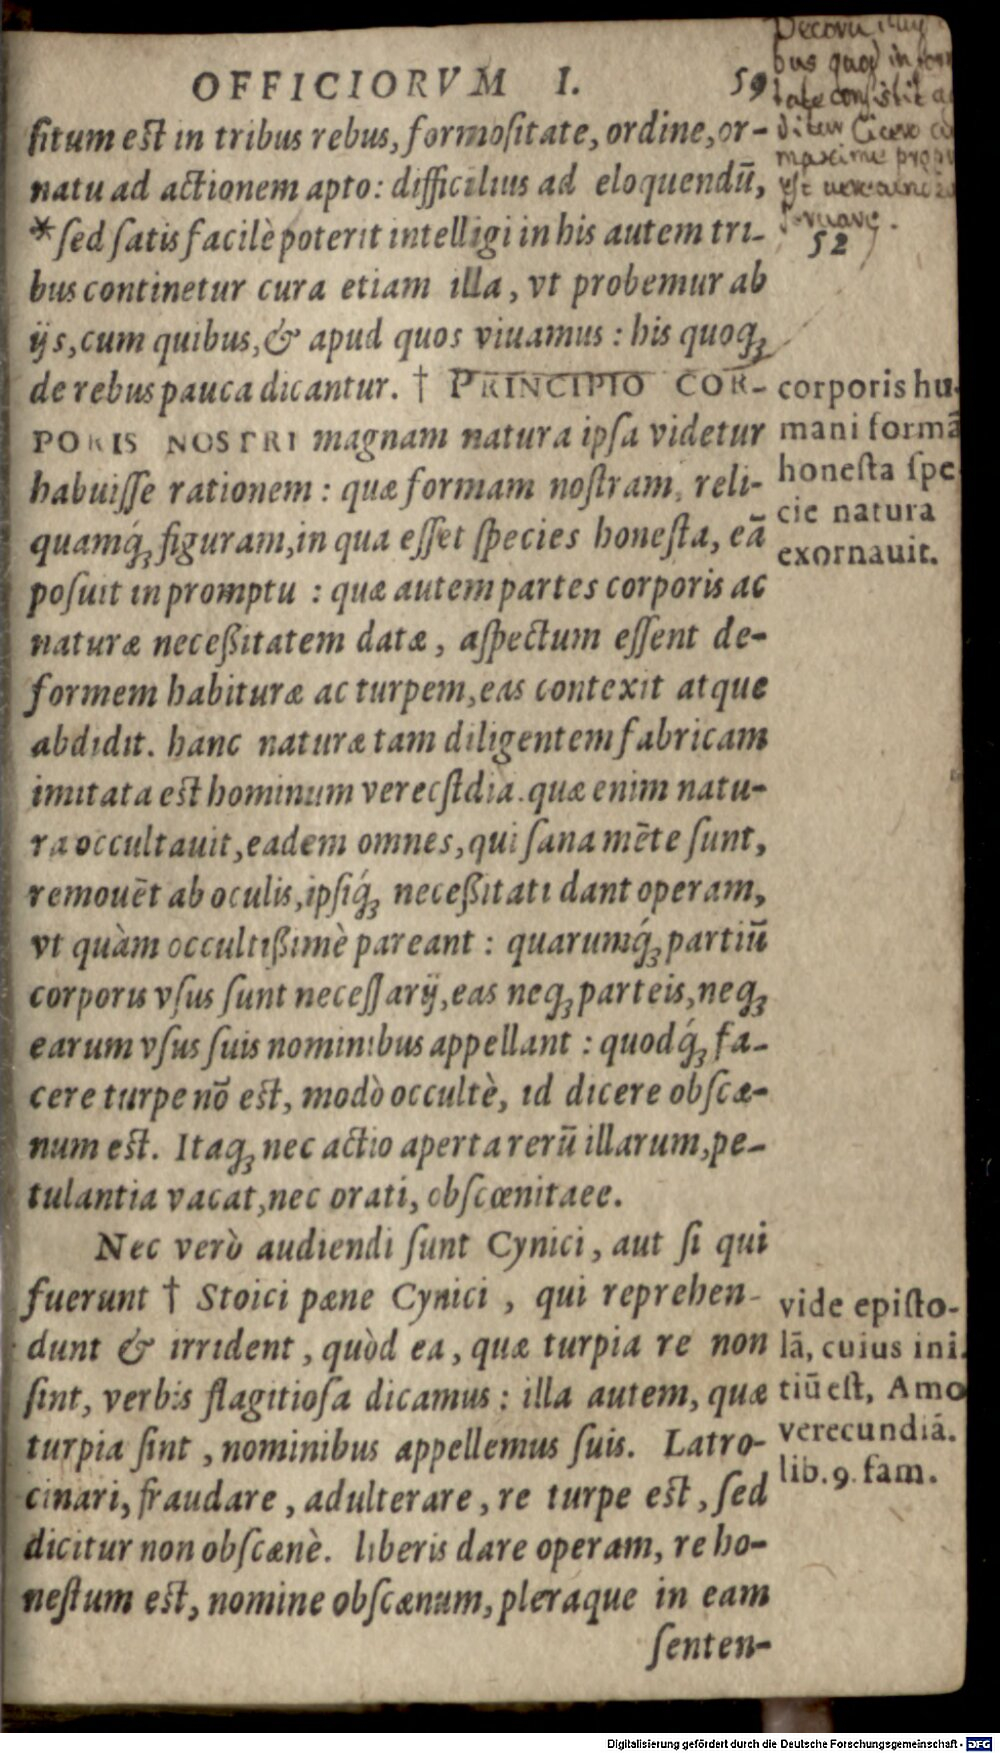 OFFICIORVM I. 59
ſitum est in tribus rebus, formoſitate, ordine, or-
natu ad actionem apto: difficilius ad eloquendū,
*ſed ſatis facilè poterit intelligi in his autem tri-
bus continetur cura etiam illa, vt probemur ab
ijs, cum quibus, & apud quos viuamus: his quoq;
de rebus pauca dicantur. † PRINCIPIO COR-
PORIS NOSTRI magnam natura ipſa videtur
habuiſſe rationem: quæ formam noſtram, reli-
quamq́; figuram, in qua eſſet ſpecies honeſta, eā
poſuit in promptu: quæ autem partes corporis ac
naturæ neceßitatem datæ, aſpectum eſſent de-
formem habituræ ac turpem, eas contexit atque
abdidit. hanc naturæ tam diligentem fabricam
imitata est hominum verecſtdia. quæ enim natu-
ra occultauit, eadem omnes, qui ſana mēte ſunt,
remouēt ab oculis, ipſiq́; neceßitati dant operam,
vt quàm occultißimè pareant: quarumq́; partiū
corporis vſus ſunt neceſſarij, eas neq; parteis, neq;
earum vſus ſuis nominibus appellant: quodq́; fa-
cere turpe nō est, modò occultè, id dicere obſcæ-
num est. Itaq; nec actio aperta rerū illarum, pe-
tulantia vacat, nec orati, obſcœnitaee.
Nec verò audiendi ſunt Cynici, aut ſi qui
fuerunt † Stoici pæne Cynici, qui reprehen-
dunt & irrident, quòd ea, quæ turpia re non
ſint, verbis flagitioſa dicamus: illa autem, quæ
turpia ſint, nominibus appellemus ſuis. Latro-
cinari, fraudare, adulterare, re turpe est, ſed
dicitur non obſcænè. liberis dare operam, re ho-
neſtum est, nomine obſcænum, pleraque in eam
ſenten-
bus quod in
maxime
52
corporis hu-
mani formā
honeſta ſpe
cie natura
exornauit.
vide epiſto-
lā, cuius ini.
tiū eſt, Amo
verecundiā.
lib. 9. fam.
Digitalisierung gefördert durch die Deutsche Forschungsgemeinschaft - DFG